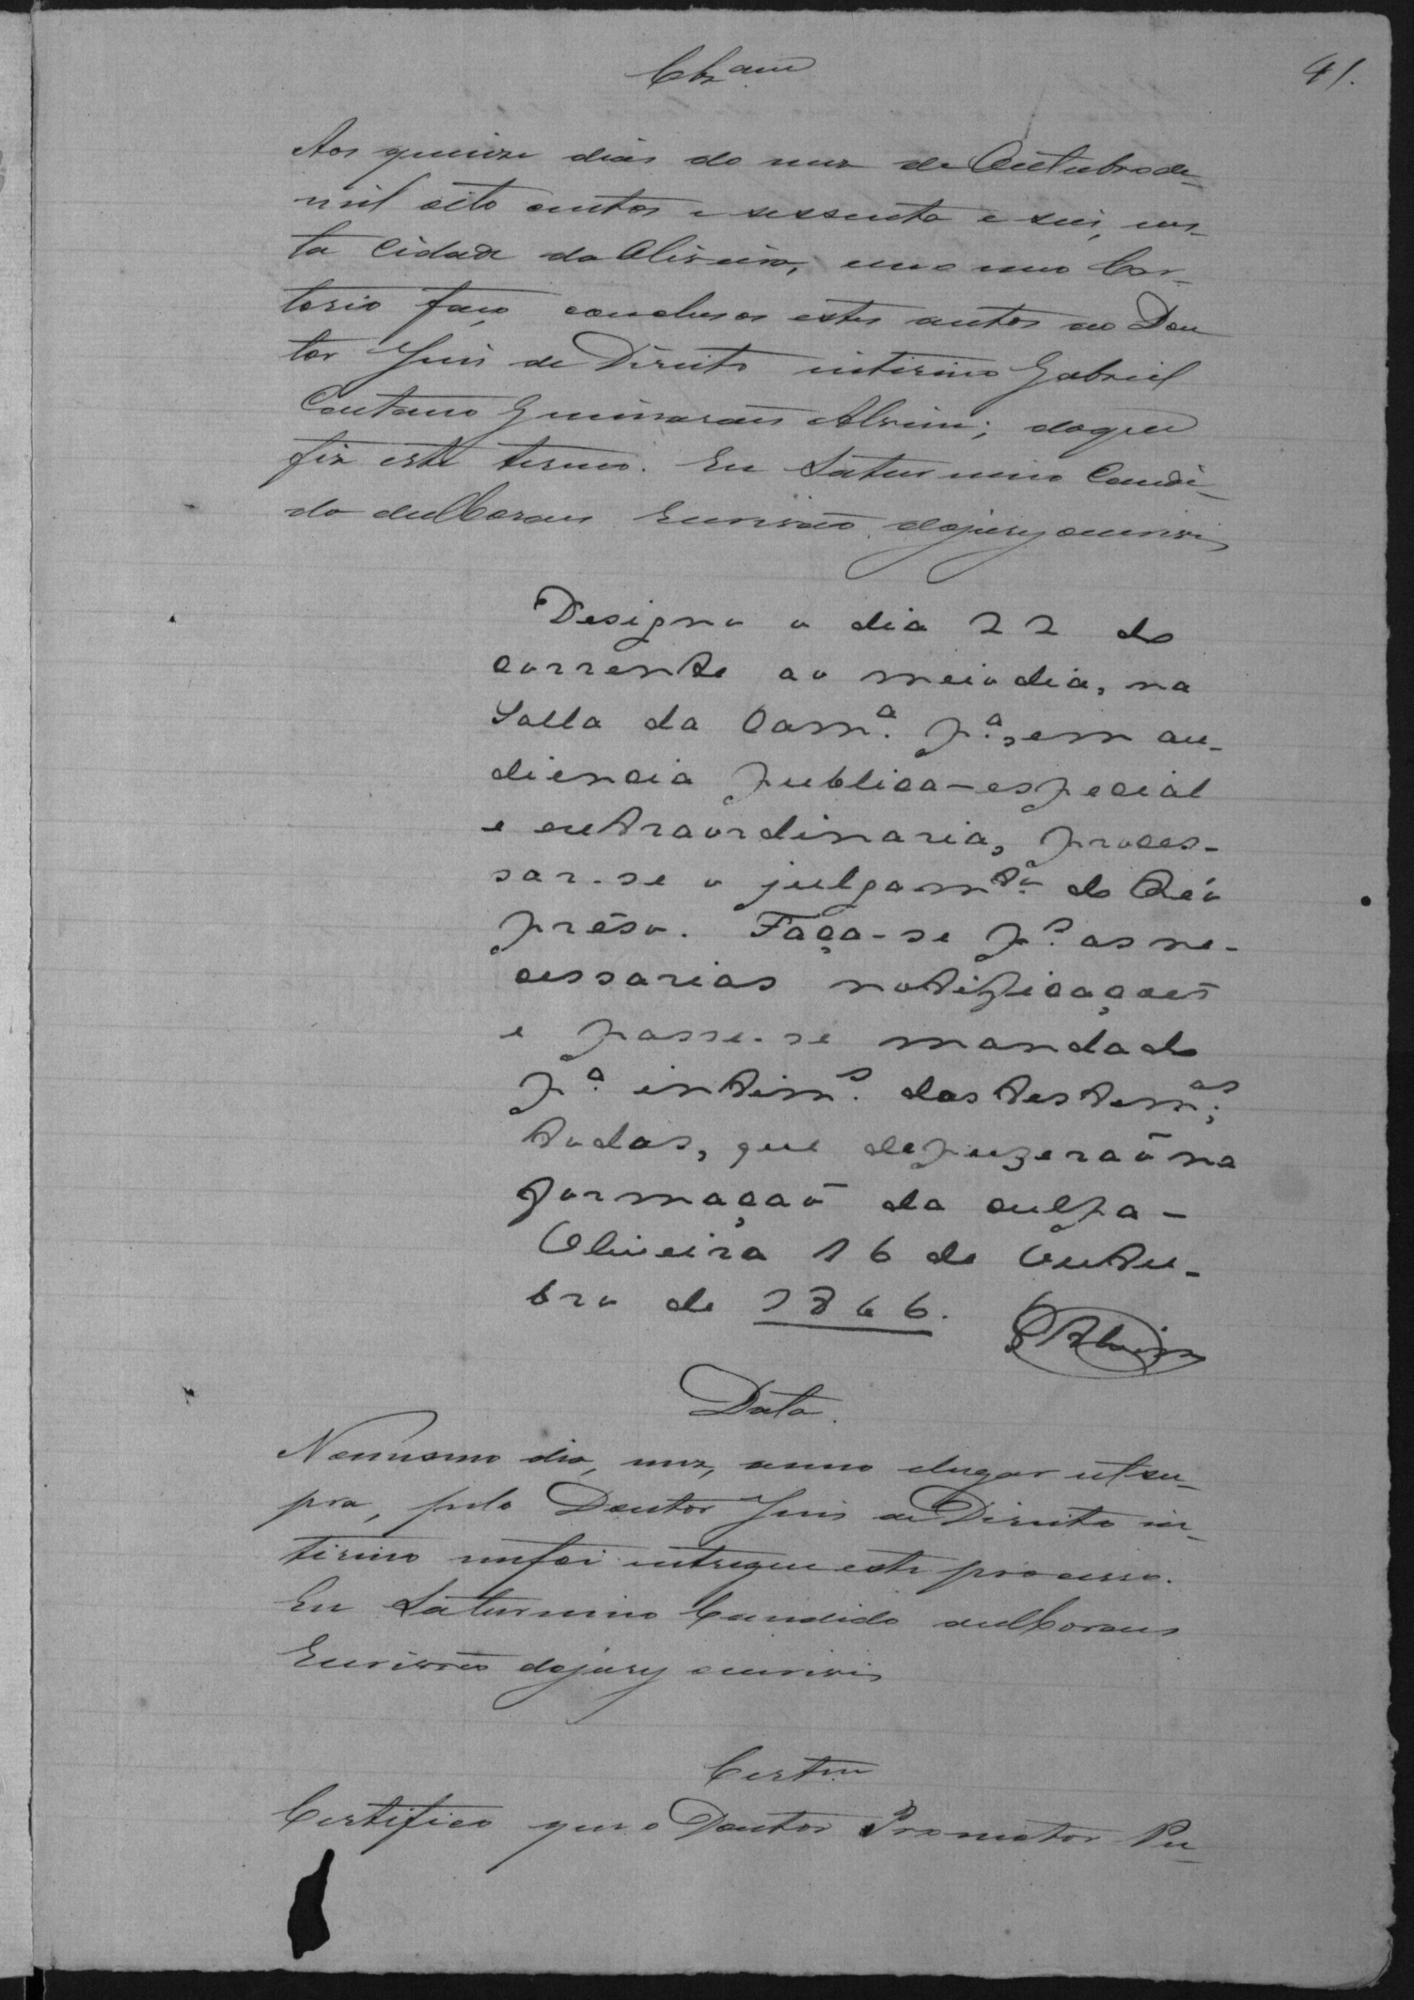 Clzam
41.
Aos quinze dias do mez de Outubro de
mil oito centos e sessenta e seis, nes-
ta Cidade da Oliveira, em o meu Car-
torio faço conclusos estes autos ao Dou
tor Juis de Direito interino Gabriel
Caetano Guimarães Alvim; do que
fiz este termo. Eu Saturnino Candi-
do de Moraes Escrivão do jury o escrivi
Designo o dia 22 do
corrente ao meio dia, na
Salla da Cam.a p.a, em au-
diencia publica-especial
e extraordinaria, proces-
sar-se o julgam.to do Réo
prêso. Faça-se p.s as ne-
cessarias notificaçoẽs
e passe-se mandado
p.a intim.s das testem.as;
todas, que depuzeraõ na
formaçaõ da culpa-
Oliveira 16 de Outu-
bro de 1866.
GAlvim
Data.
No mesmo dia, mez, anno e lugar ut su-
pra, pelo Doutor Juis de Direito in-
terino me foi entregue este processo.
Eu Saturnino Candido de Moraes
Escrivão do jury o escrivi
Certm
Certifico que o Doutor Promotor Pu-